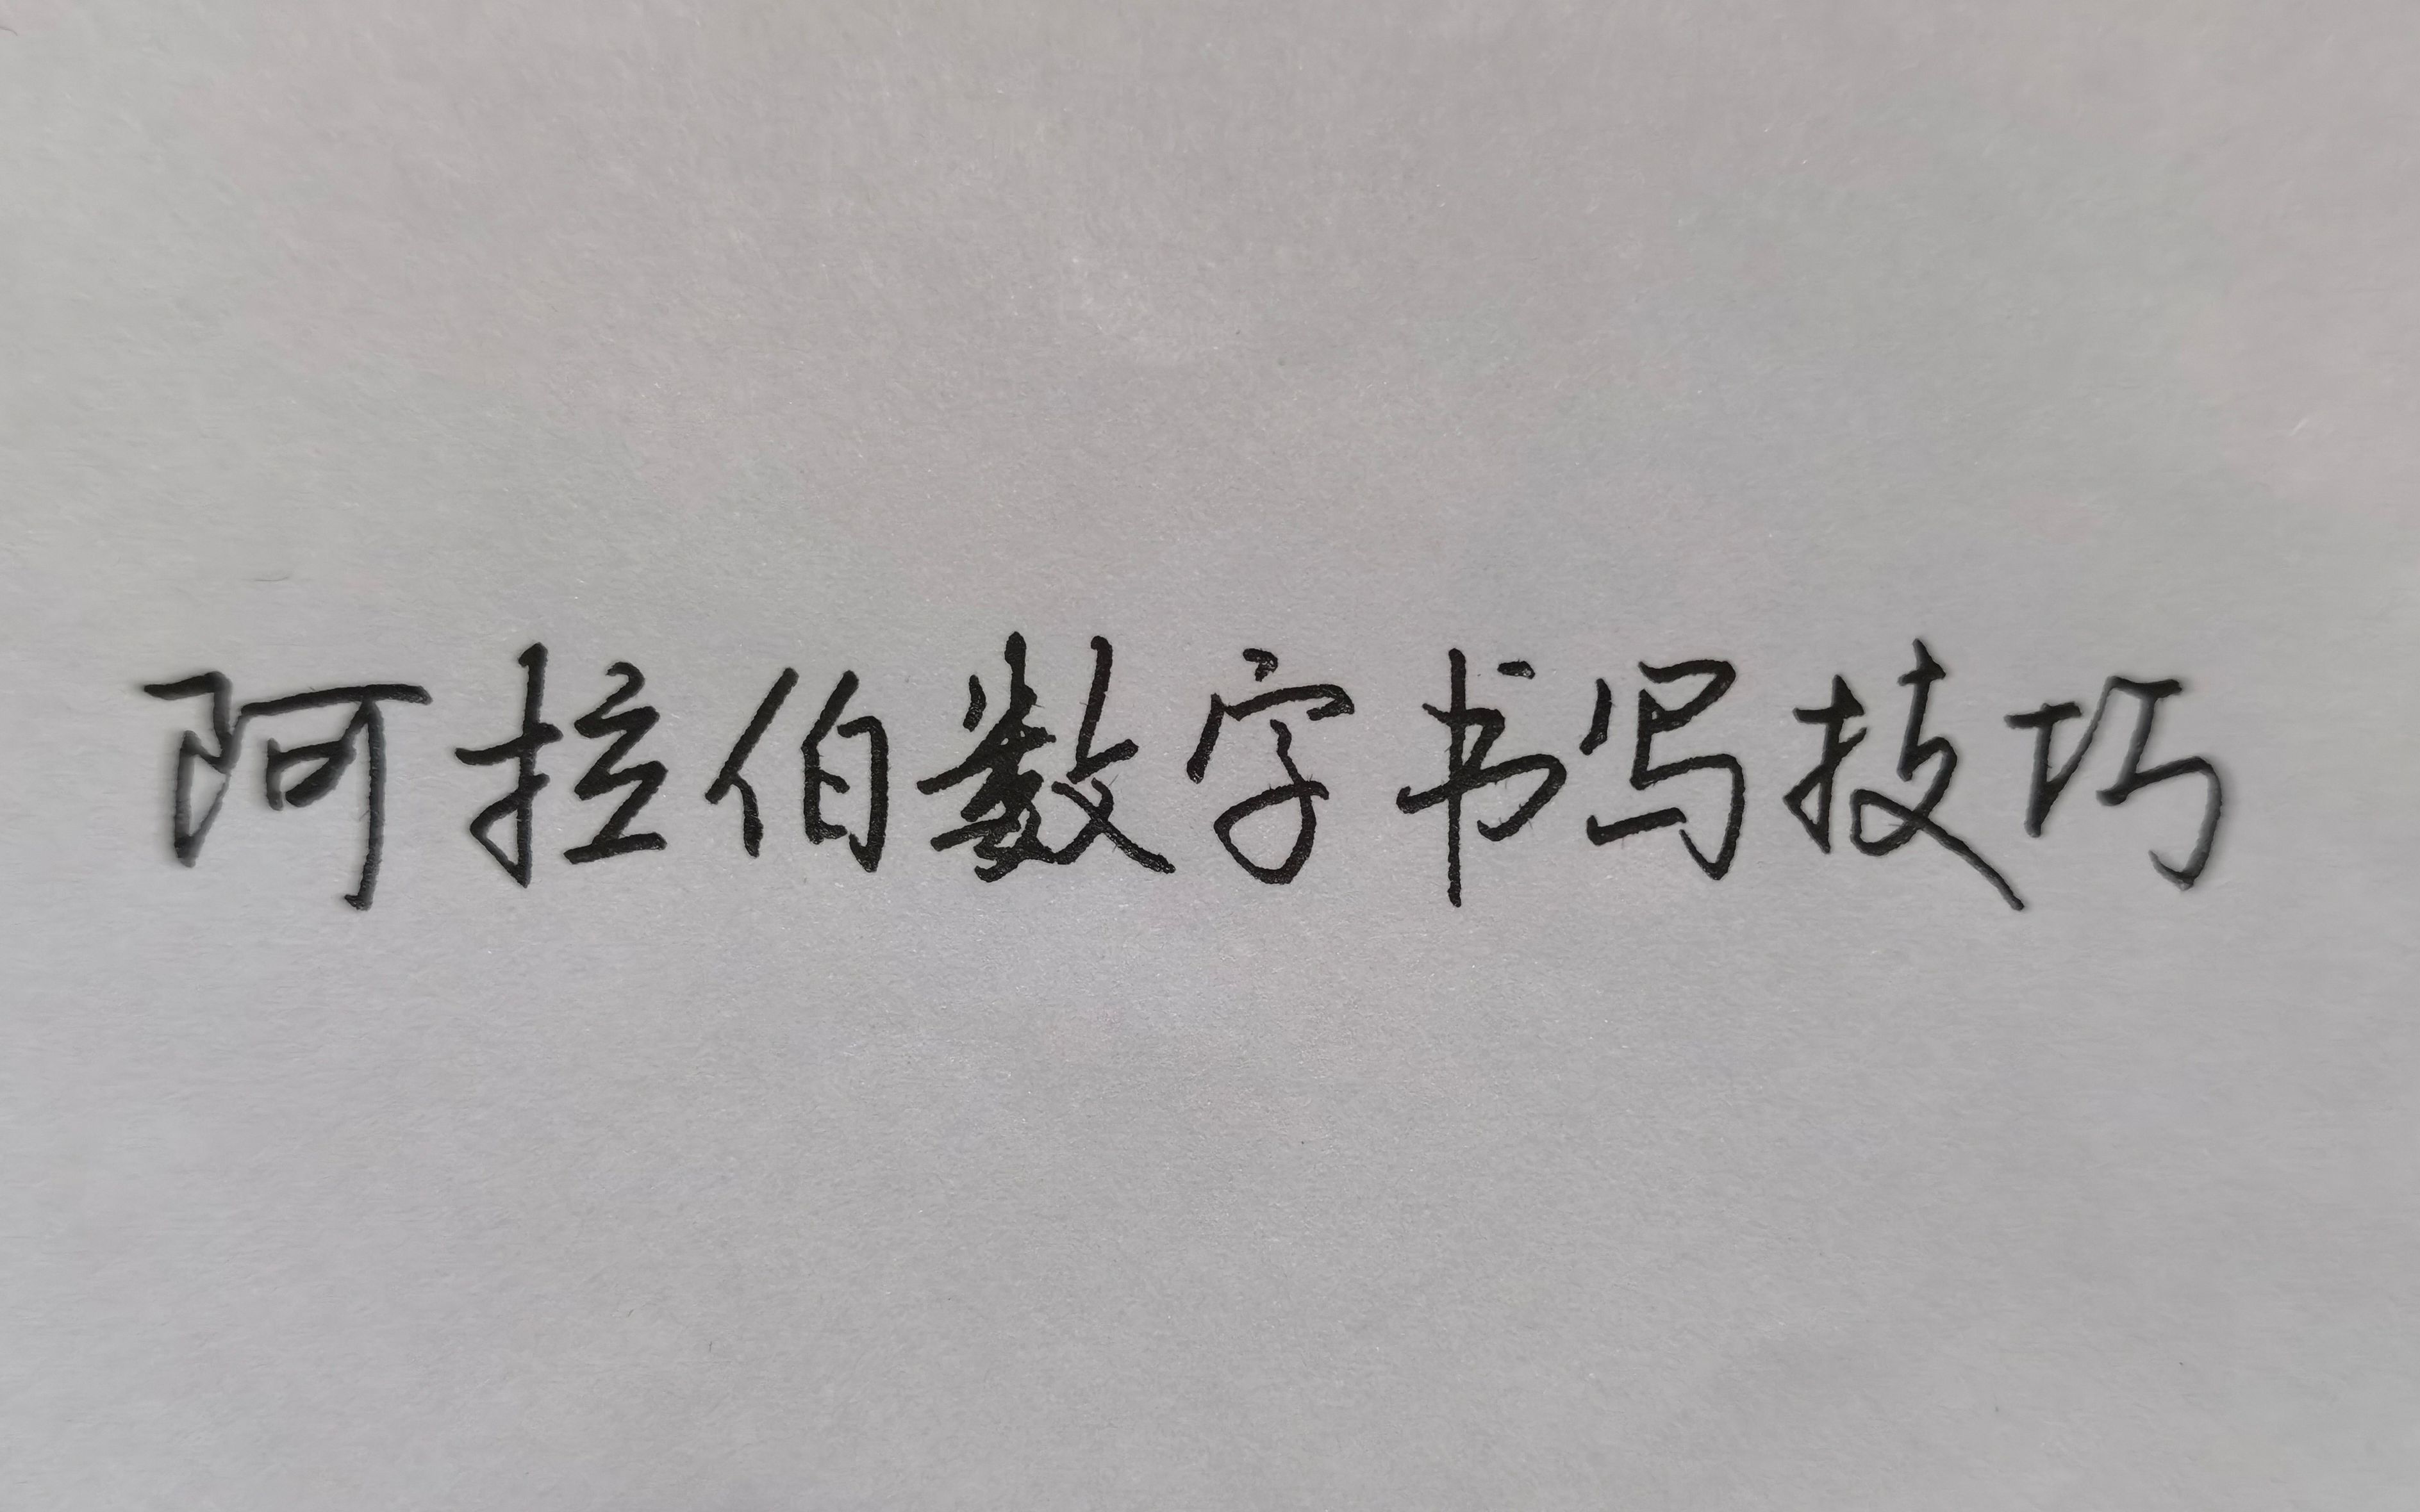 阿拉伯数字书写技巧